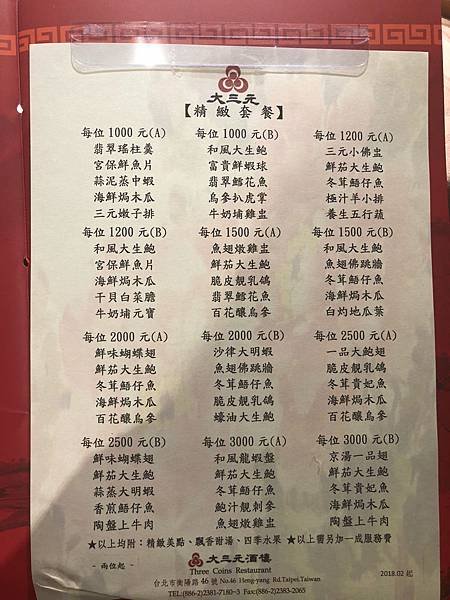 大三元
【精緻套餐】
每位 1000 元(A)
翡翠瑤柱羹
宮保鮮魚片
蒜泥蒸中蝦
海鮮焗木瓜
三元嫩子排
每位 1000 元(B)
和風大生鮑
富貴鮮蝦球
翡翠鱈花魚
烏參扒虎掌
牛奶埔雞盅
每位 1200 元(A)
三元小佛盅
鮮茄大生鮑
冬茸鯃仔魚
極汁羊小排
養生五行蔬
每位 1200 元(B)
和風大生鮑
宮保鮮魚片
海鮮焗木瓜
干貝白菜膽
牛奶埔元寶
每位 1500 元(A)
魚翅燉雞盅
鮮茄大生鮑
脆皮靚乳鴿
翡翠鱈花魚
百花釀烏參
每位 1500 元(B)
和風大生鮑
魚翅佛跳牆
冬茸鯃仔魚
海鮮焗木瓜
白灼地瓜葉
每位 2000 元(A)
鮮味蝴蝶翅
鮮茄大生鮑
冬茸鯃仔魚
海鮮焗木瓜
百花釀烏參
每位 2000 元(B)
沙律大明蝦
魚翅佛跳牆
冬茸鯃仔魚
脆皮靚乳鴿
蠔油大生鮑
每位 2500 元(A)
一品大鮑翅
脆皮靚乳鴿
冬茸貴妃魚
海鮮焗木瓜
百花釀烏參
每位 2500 元(B)
鮮味蝴蝶翅
鮮茄大生鮑
蒜蒸大明蝦
香煎鯃仔魚
陶盤上牛肉
每位 3000 元(A)
和風龍蝦盤
鮮茄大生鮑
冬茸鯃仔魚
鮑汁靚刺參
魚翅燉雞盅
每位 3000 元(B)
京湯一品翅
鮮茄大生鮑
冬茸貴妃魚
海鮮焗木瓜
陶盤上牛肉
★以上均附：精緻美點、飄香甜湯、四季水果 ★以上需另加一成服務費
- 兩位起 -
大三元酒樓
Three Coins Restaurant
台北市衡陽路 46 號 No.46 Heng-yang Rd.Taipei,Taiwan
TEL:(886-2)2381-7180~3 Fax:(886-2)2383-2065
2018.02 起